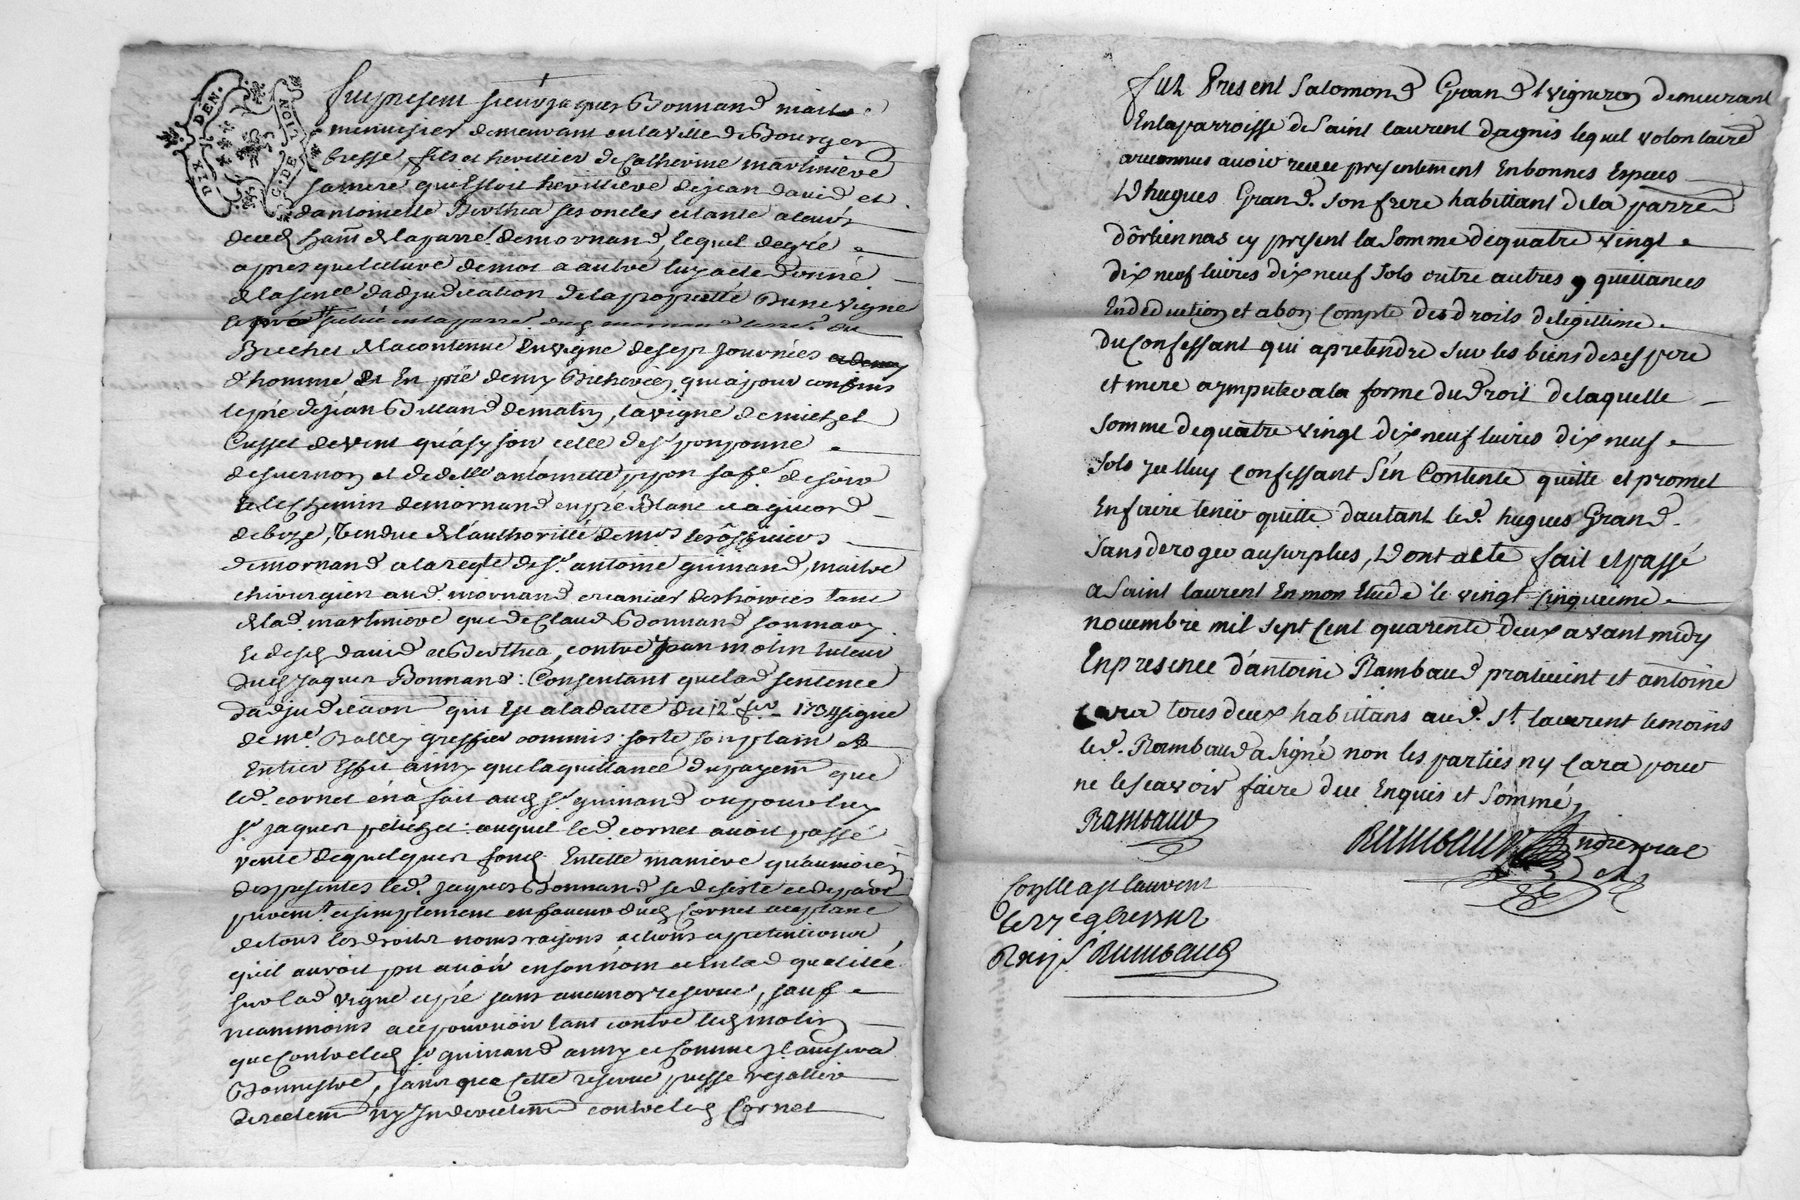 DIX DEN.
G. DE LION
fut present sieur jaques Bonnand maitre
menuisier demeurant en la ville de Bourg en
bresse, fils et heritier de Catherine martiniere
sa mere qui Estoit heritiere de jean david et
d'antoinette Berthea ses oncles et tante a leur
deced
de la parre. de mornand, lequel de gré
apres que lecture de mot a autre luy a ete donné
de la sence d'adjudication de la propriette d'une vigne
et pré situé en la parre dud mornand
Brechet de la contenue En vigne de sept journées
d'homme et En pré demy Bicherée, qui a pour confins
le pré de jean Billand de matin, la vigne de michel
Cusset de vent
et de d.lle antoinette pipon sa fe. de soir
le Chemin de mornand
de bize, rendue de l'authorité de mrs les officiers
de mornand a la reqte de sr. antoine guinand, maitre
chirurgien aud. mornand creancier des hoiries tant
de la d. martiniere que de Claude Bonnand son mary
et desd david et Berthea, contre jean molin tuteur
dud jaques Bonnand: Consentant que lad sentence
d'adjudication qui Est a la datte du 12e 1734 signé
de me. Balley greffier commis sorte son plain et
Entier Effet ainsy que la quittance du payem que
led. cornet en a fait aud sr. guinand ou pour luy
sr. jaques auquel led. cornet avoit passé
vente de quelques fonds En telle maniere qu'au moien
des presentes led. jaques Bonnand se desiste et depart
purem.t et simplement en faveur dud Cornet aceptant
de tous les droits noms raisons actions et pretentions
qu'il auroit pu avoir en son nom et En lad qualitée
sur lad vigne et pré sans aucune reserve, sauf
neammoins a se pourvoir tant contre led molin
que Contre led sr guinand ainsy et Comme il avisera
Bonnestre, sans que Cette reserve puisse rejallir
directem ny Indirectem contre led Cornet
Fut Present Salomond Grand vigneron demeurant
En la parroisse de Saint laurent dagnis lequel volontaire
a reconnus avoir receu presentement En bonnes Especes
D hugues Grand. son frere habittant de la parre
d'orliennas cy present la Somme de quatre vingt
dix neuf livres dix neuf sols outre autres quittances
En deduction et a bon Compte des droits de legittime
du Confessant qui a pretendre sur les biens de ses pere
et mere a ymputer a la forme du droit de laquelle
somme de quatre vingt dix neuf livres dix neuf
sols Jcelluy Confessant s'en Contente quitte et promet
En faire tenir quitte d'autant led. hugues Grand
sans deroger au surplus, Dont acte fait et passé
a Saint laurent En mon Etude le vingt cinquieme
novembre mil sept Cent quarente deux avant midy
En presence d'antoine Rambaud praticient et antoine
Cara tous deux habittans aud. St. laurent temoins
led. Rambaud a signé non les parties ny Cara pour
ne le scavoir faire de ce Enquis et sommé
Rambaud
Rambaud notre royal
Conlle a st laurent
le 27e 9bre 1742
Reçu Rambaud